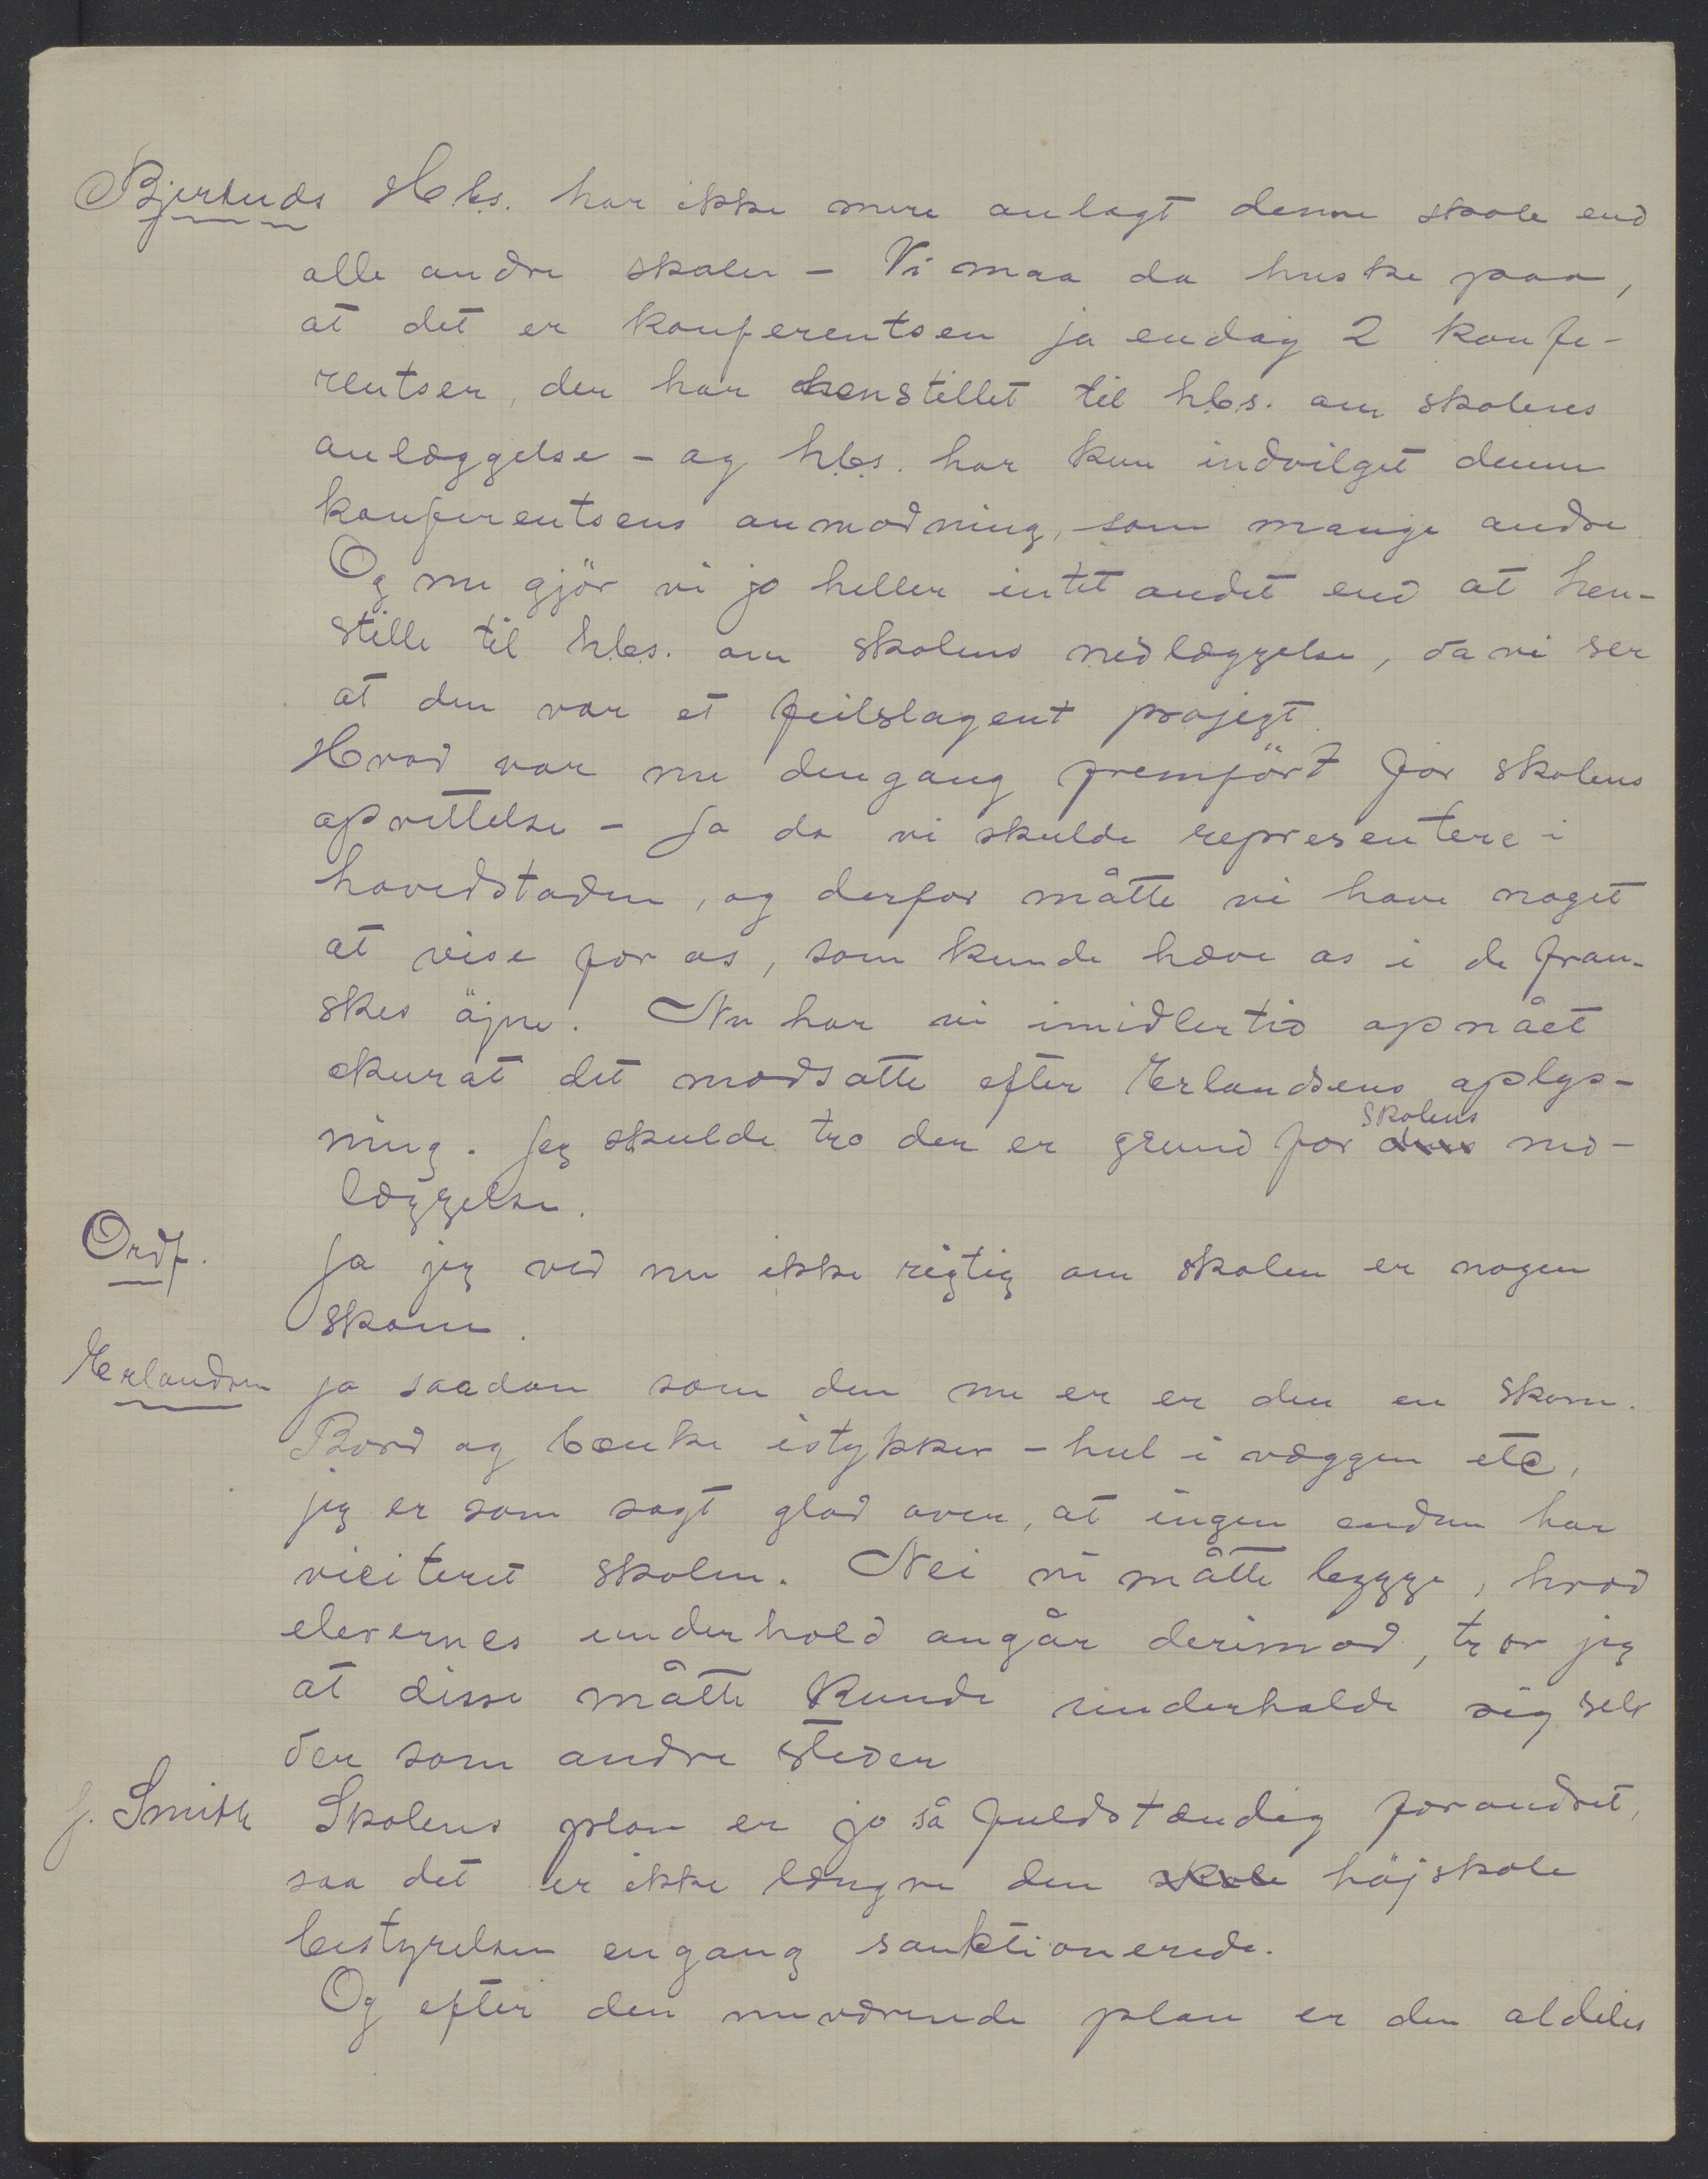 Bjertnæs Hbs. har ikke mere anlagt denne skole end
alle andre skoler – Vi maa da huske paa,
at det er konferentsen ja endog 2 konfe-
rentser, der har henstillet til hbs. om skolens
anlæggelse – og hbs. har kun indvilget denne
konferentsens anmodning, som mange andre.
Og nu gjör vi jo heller intet andet end at hen-
stille til hbs. om skolens nedlæggelse, da vi ser
at den var et feilslagent projegt.
Hvad var nu dengang fremført for skolens
oprettelse – Ja da vi skulde representere i
hovedstaden, og derfor måtte vi have noget
at vise for os, som kunde hæve os i de fran-
skes öjne. Nu har vi imidlertid opnået
akurat det modsatte efter Erlandsens oplys-
ning. Jeg skulde tro der er grund for skolens ned-
læggelse.
Ordf. Ja jeg ved nu ikke rigtig om skolen er nogen
skam.
Erlandsen ja saadan som den nu er er den en skam.
Bord og bænke istykker – hul i væggen etc,
jeg er som sagt glad over, at ingen endnu har
viciteret skolen. Nei vi måtte bygge, hvad
elevernes underhold angår derimod, tror jeg
at disse måtte kunde underholde sig selv
der som andre steder
J. Smith Skolens plan er jo så fuldstændig forandret,
saa det er ikke længre den skole højskole
bestyrelsen engang sanktionerede.
Og efter den nuværende plan er den aldeles